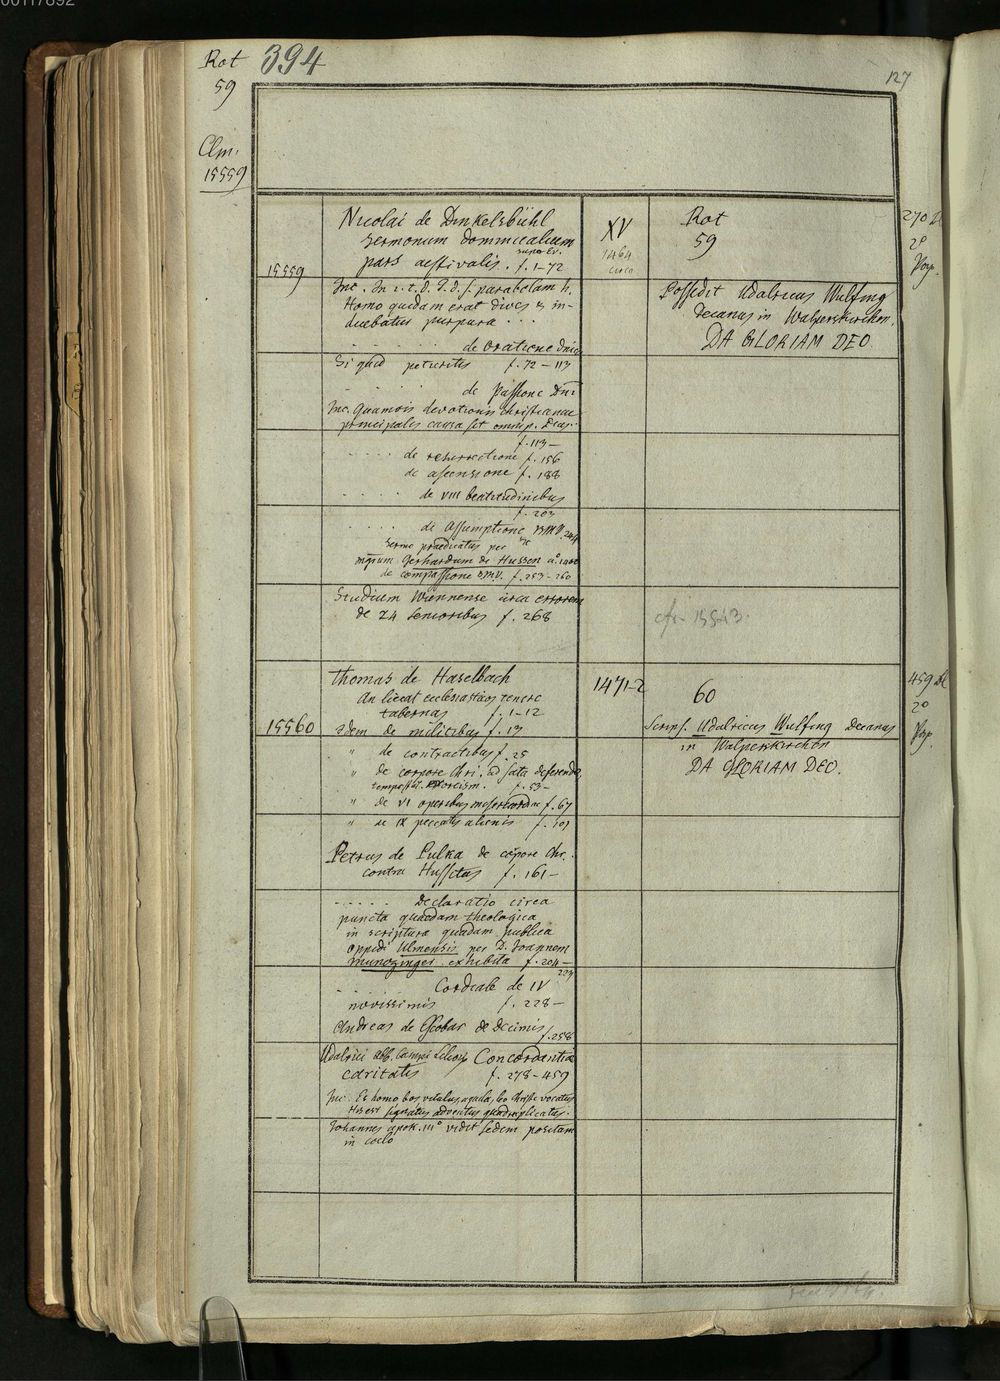 00117892
Rot
59
394
127
Clm.
15559
15559
Nicolai de Dinkelsbühl
sermonum dominicalium
super Ev.
pars aestivalis. f. 1-72
XV
1464
circa
Rot
59
270 Bl
2º
Pap.
Inc. In i. t. d. d. s. parabolam h.
Homo quidam erat dives & in-
duebatur purpura . . .
Possedit Udalricus Wulfing
Decanus in Walperskirchen.
DA GLORIAM DEO.
. . . . . de Oratione dnica
Si quid petieritis f. 72 – 113
. . . de Passione Dni
Inc. Quamvis devotionis christianae
principalis causa sit omnip. Deus.
f. 113 –
. . . . . de resurrectione f. 156
de ascensione f. 188
. . . . . de VIII beatitudinibus
f. 203
. . . . . de Assumptione BMV. 244
Sermo praedicatus per
mgrum Gerhardum de Hussen aº
de compassione BMV. f. 253 - 260
Studium Wiennense circa errorem
de 24 senioribus f. 268
cfr. 15543.
15560
Thomas de Haselbach
An liceat ecclesiasticos tenere
tabernas f. 1–12
Idem de militibus f. 13
" de contractibus f. 25
" de corpore Chri. ad sata deferendo
tempestat. exorcism. f. 53 –
" de VI operibus misericordiae f. 67
" de IX peccatis alienis f. 101
1471-2
60
Scrips. Udalricus Wulfing Decanus
in Walperskirchen
DA GLORIAM DEO.
459 Bl
2º
Pap.
Petrus de Pulka de corpore Chr.
contra Hussitas f. 161 –
. . . . . Declaratio circa
puncta quaedam theologica
in scriptura quadam publica
oppidi Ulmensis per D. Joannem
Munczinger exhibita f. 204 –
224
. . . . . Cordiale de IV
novissimis f. 228 –
Andreas de Escobar de Decimis f. 258
Udalrici abb. Campi Lilior. Concordantia
caritatis f. 278 – 459
Inc. Es homo bos vitulus, aquila, leo Christe vocatus
His est signatus adventus quadruplicatus.
Johannes apok. IIIº vidit sedem positam
in coelo